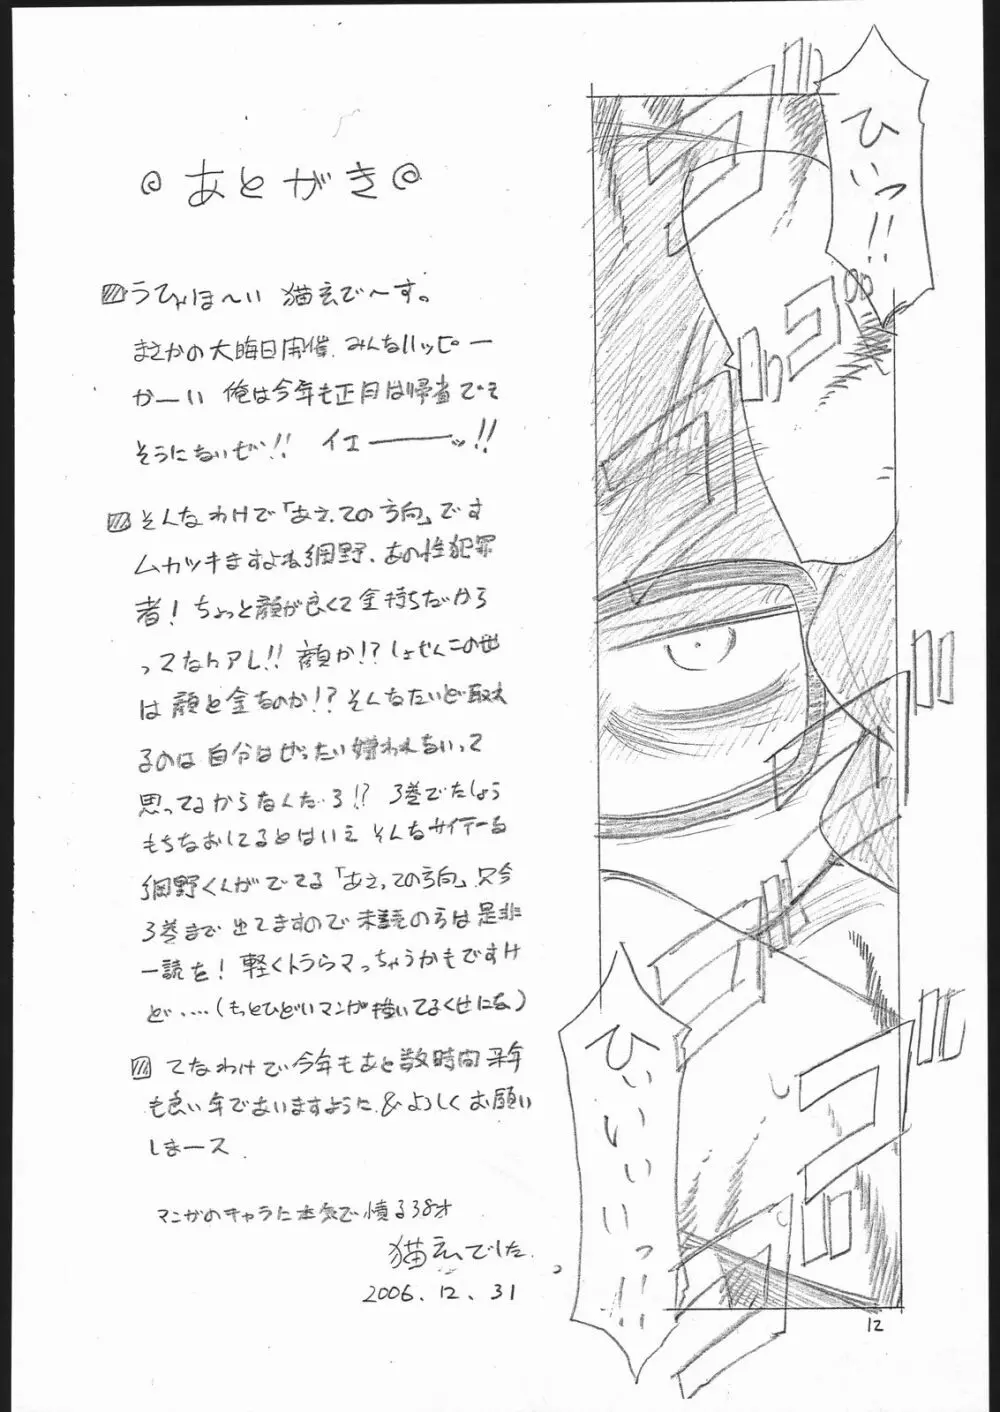 あとがき
うひゃほ〜い 猫玄で〜す。
まさかの大晦日開催、みんなハッピー
かーい 俺は今年も正月は帰省でき
そうにないぜ!! イエーーーッ!!
そんなわけで「あえての方向」です
ムカツキますよね網野、あの性犯罪
者! ちょっと顔が良くて金持ちだから
ってなんアレ!! 顔か!? しょせんこの世
は顔と金なのか!? そんなたいど取れ
るのは自分はぜったい嫌われないって
思ってるからなんだろ!? 3巻でたしょう
もちなおしてるとはいえ そんなサイテーな
網野くんがでてる「あえっての方向」只今
3巻まで出てますので未読の方は是非
一読を! 軽くトラウマっちゃうかもですけ
ど・・・・(もっとひどいマンガ描いてるくせにな)
てなわけで今年もあと数時間 来年
も良い年でありますように & よろしくお願い
しまース
マンガのキャラに本気で憤る38才
猫玄でした。
2006.12.31
ひいっ!!
ひいいいいっ!!
12